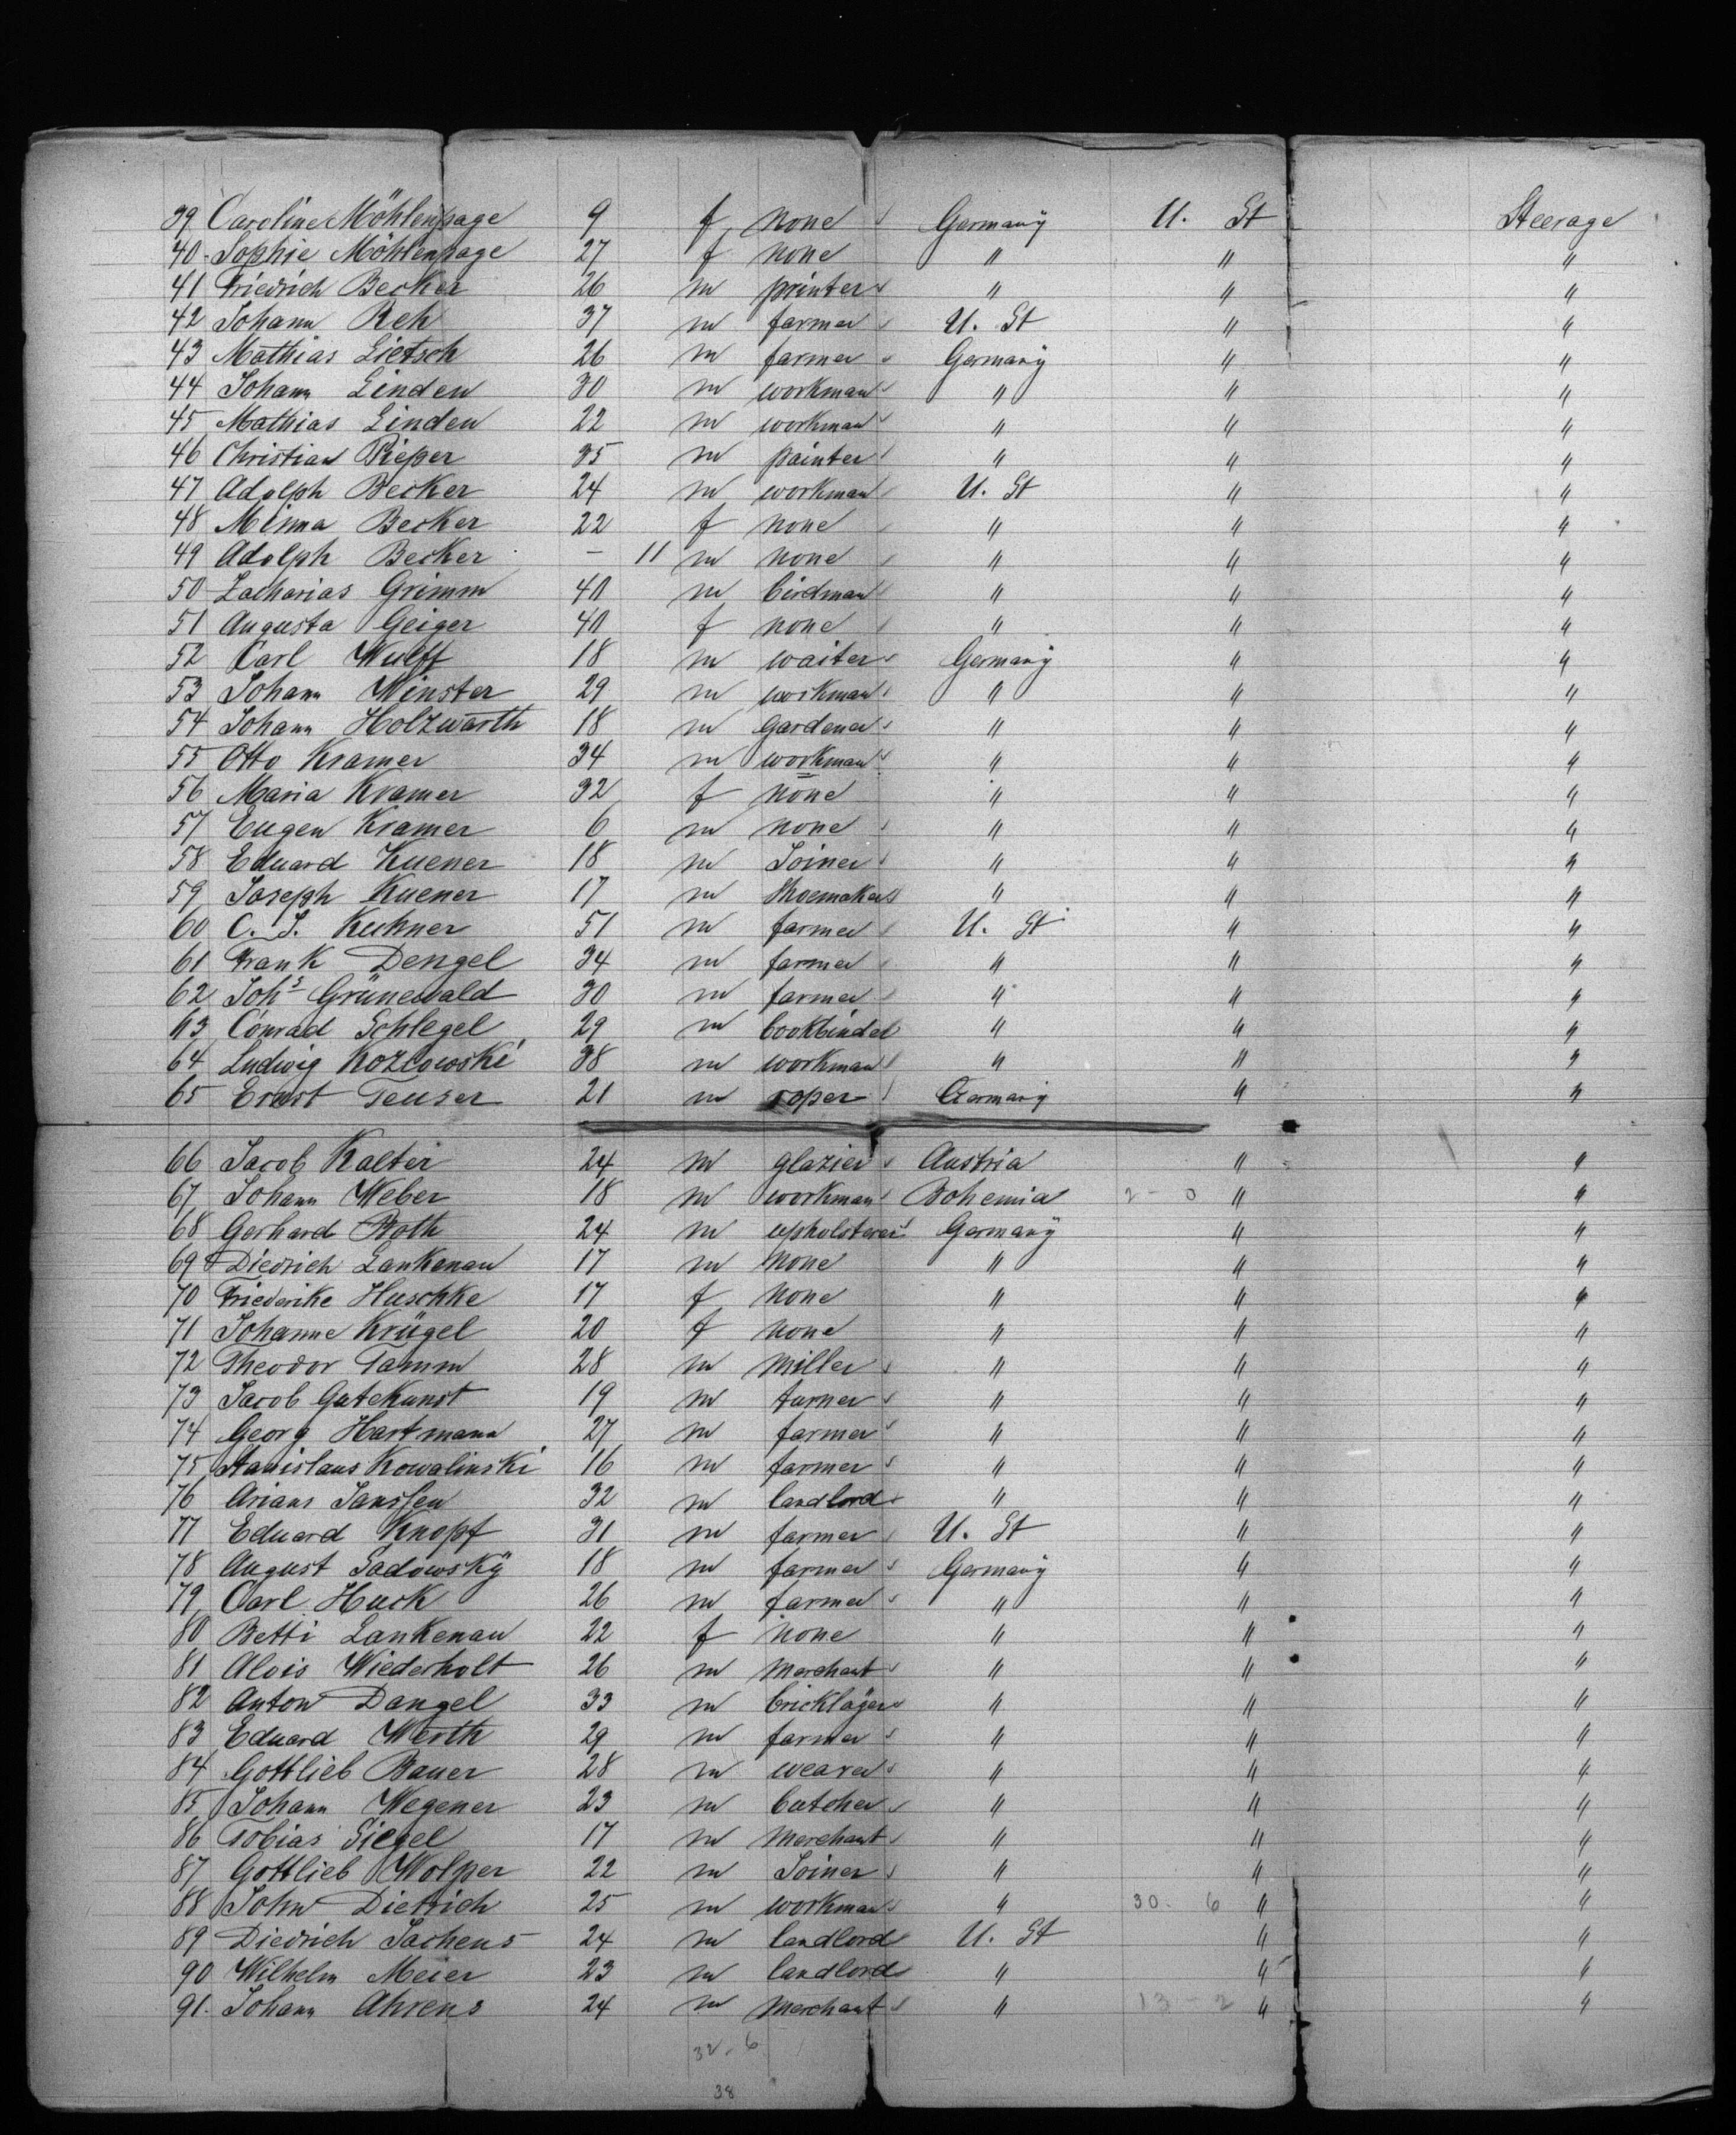 39 Caroline Möhlenpage 9 f none Germany U. St Steerage
40 Sophie Möhlenpage 27 f none " " "
41 Friedrich Becker 26 m printer " " "
42 Johann Reh 37 m farmer U. St " "
43 Mathias Lietsch 26 m farmer Germany " "
44 Johann Linden 30 m workman " " "
45 Mathias Linden 22 m workman " " "
46 Christian Pieper 35 m painter " " "
47 Adolph Becker 24 m workman U. St " "
48 Minna Becker 22 f none " " "
49 Adolph Becker - 11 m none " " "
50 Zacharias Grimm 40 m birdman " " "
51 Augusta Geiger 40 f none " " "
52 Carl Wulff 18 m waiter Germany " "
53 Johann Winster 29 m workman " " "
54 Johann Holzwarth 18 m gardener " " "
55 Otto Kramer 34 m workman " " "
56 Maria Kramer 32 f none " " "
57 Eugen Kramer 6 m none " " "
58 Eduard Kuener 18 m Joiner " " "
59 Joseph Kuener 17 m Shoemaker " " "
60 C. J. Kuhner 51 m farmer U. St " "
61 Frank Dengel 34 m farmer " " "
62 Johs Grünewald 30 m farmer " " "
63 Conrad Schlegel 29 m bookbinder " " "
64 Ludwig Kozlowski 38 m workman " " "
65 Ernst Teuser 21 m roper Germany " "
66 Jacob Kalter 24 m glazier Austria " "
67 Johann Weber 18 m workman Bohemia 2 - 0 " "
68 Gerhard Roth 24 m upholsterer Germany " "
69 Diedrich Lankenau 17 m none " " "
70 Friederike Huschke 17 f none " " "
71 Johanne Krügel 20 f none " " "
72 Theodor Tamm 28 m miller " " "
73 Jacob Gutekunst 19 m turner " " "
74 Georg Hartmann 27 m farmer " " "
75 Stanislaus Kowalinski 16 m farmer " " "
76 Arians Janssen 32 m landlord " " "
77 Eduard Knopf 31 m farmer U. St " "
78 August Sadowsky 18 m farmer Germany " "
79 Carl Huck 26 m farmer " " "
80 Betti Lankenau 22 f none " " "
81 Alois Wiederholt 26 m merchant " " "
82 Anton Dangel 33 m bricklayer " " "
83 Eduard Werth 29 m farmer " " "
84 Gottlieb Bauer 28 m weaver " " "
85 Johann Wegener 23 m butcher " " "
86 Tobias Siegel 17 m merchant " " "
87 Gottlieb Wolper 22 m Joiner " " "
88 John Dietrich 25 m workman " 30. 6 " "
89 Diedrich Jachens 24 m landlord U. St " "
90 Wilhelm Meier 23 m landlord " " "
91. Johann Ahrens 24 m merchant " 13 - 2 " "
32. 6
38